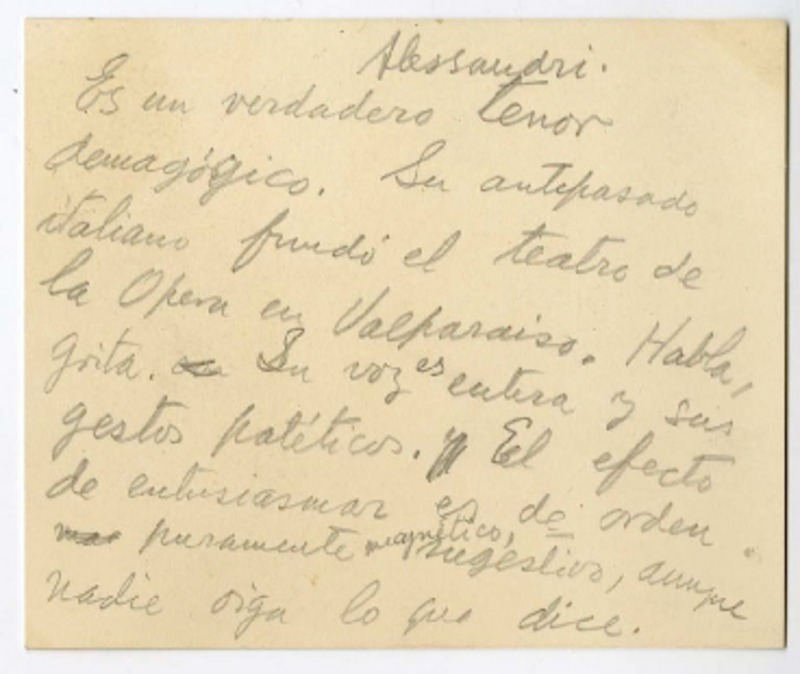 Alessandri.
Es un verdadero tenor
demagógico. Su antepasado
italiano fundó el teatro de
la Opera en Valparaiso. Habla,
grita. Su voz es entera y sus
gestos patéticos. El efecto
de entusiasmar es de orden
puramente magnético, sugestivo, aunque
nadie oiga lo que dice.